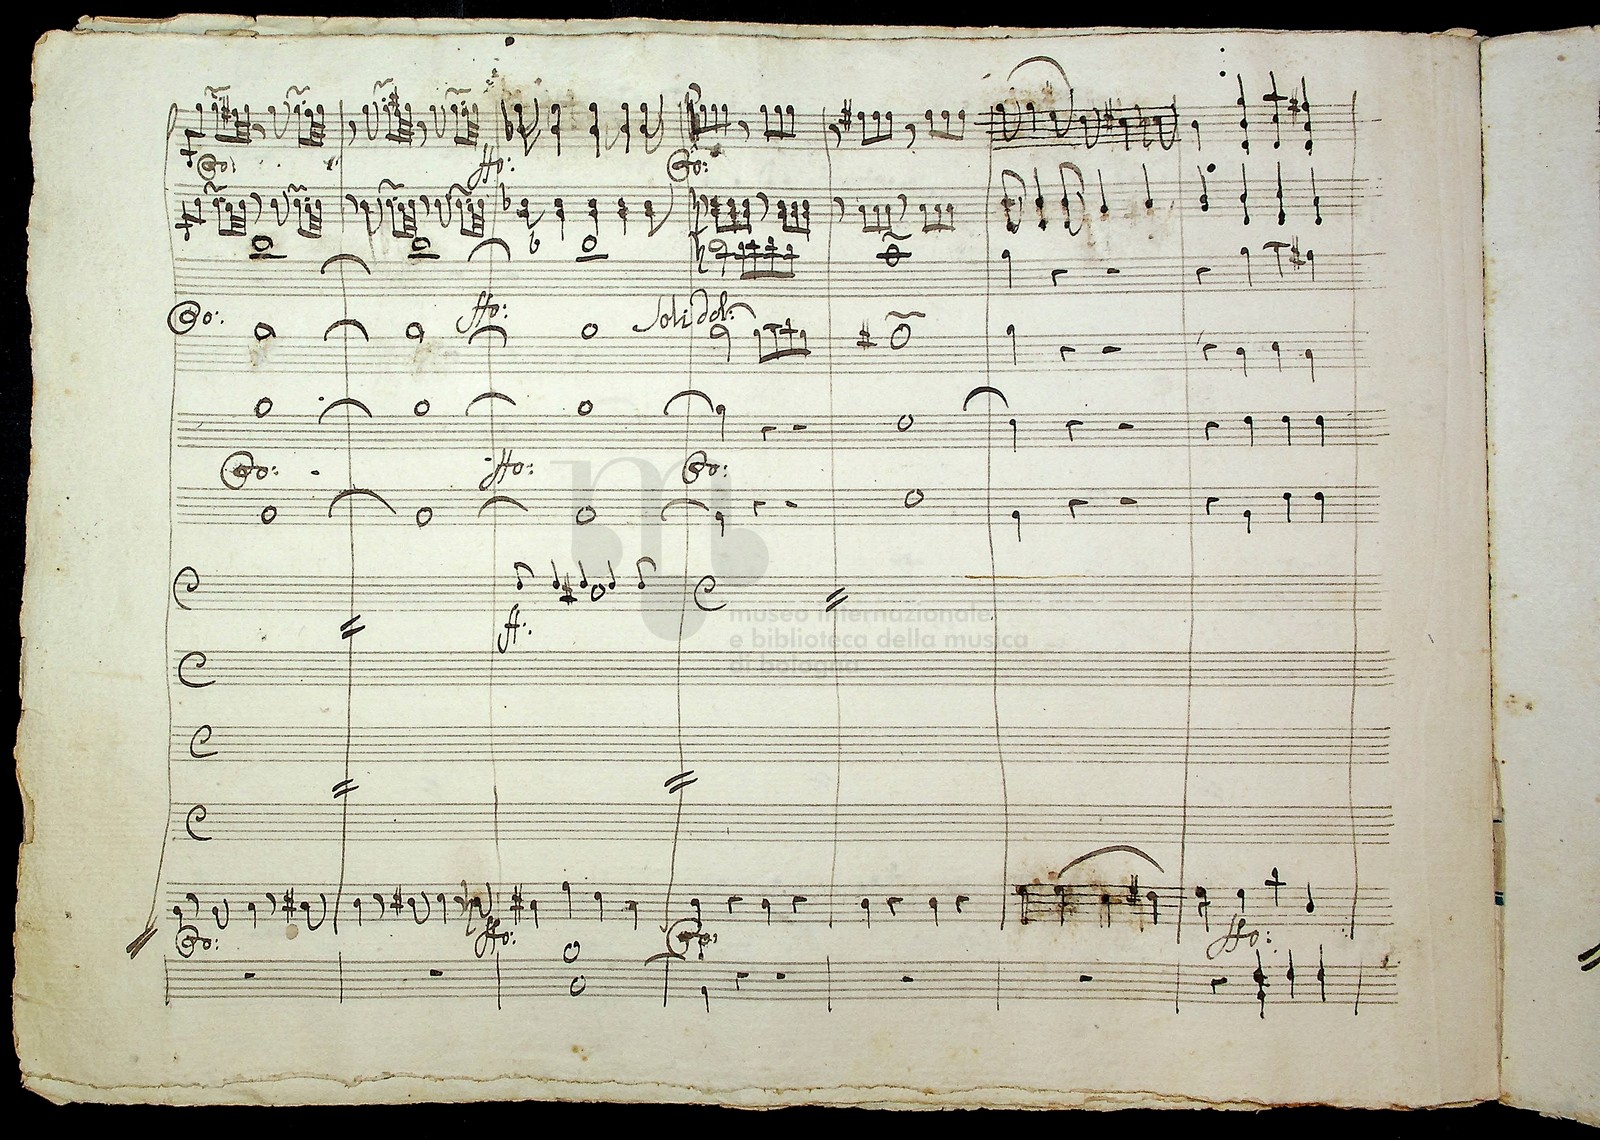 Po: ffo: Po:
Po: ffo: Soli dol:
Po: ffo: Po:
ff:
museo internazionale
e biblioteca della musica
di bologna
Po: ffo: Po: ffo: